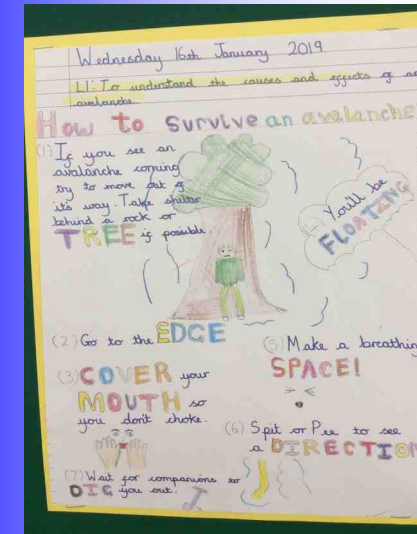 Wednesday 16th January 2019
LI: To understand the causes and effects of an
avalanche.
How to survive an avalanche
(1) If you see an
avalanche coming
try to move out of
it's way. Take shelter
behind a rock or
TREE if possible.
You'll be
FLOATING
(2) Go to the EDGE
(3) COVER your
MOUTH so
you don't choke.
(5) Make a breathin
SPACE!
(6) Spit or Pee to see
a DIRECTION
(7) Wait for companions to
DIG you out.